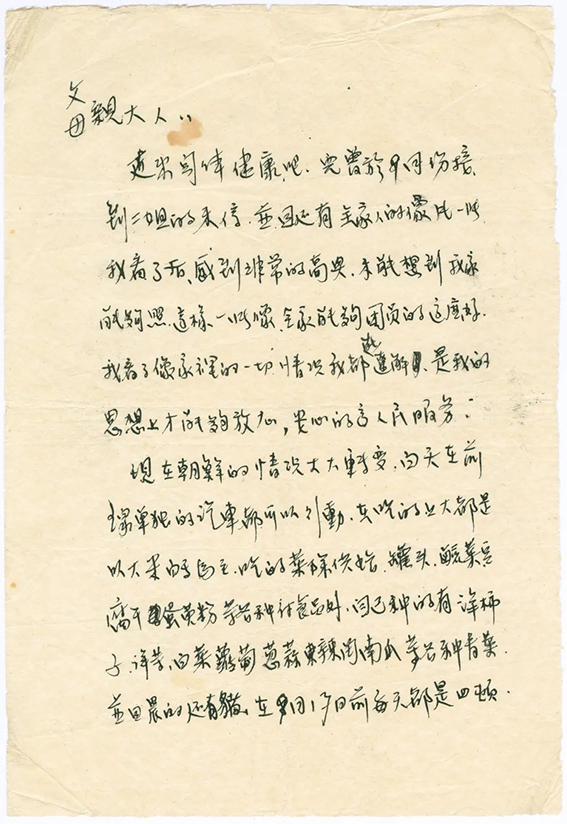 父母親大人：
近来身体健康吧。兒曾於9月份接
到二姐的来信，並且还有全家人的像片一些
我看了后、感到非常的高興，未能想到我家
能夠照這樣一些像，全家能夠团员的这麽好。
我看了像家裡的一切情况我都能遼解，是我的
思想上才能夠放心，安心的為人民服务。
現在朝鮮的情况大大轉变，白天在前
缐单独的汽車都可以引動，在吃的上大都是
以大米白麵為主，吃的菜除供给，罐头，酸菜豆
腐干蛋黄粉等各种付食品外，自己种的有洋柿
子，洋芋，白菜蘿蔔蔥蒜東辣南瓜等各种青菜，
並且晨的还有豬，在9月15日前每天都是四頓，